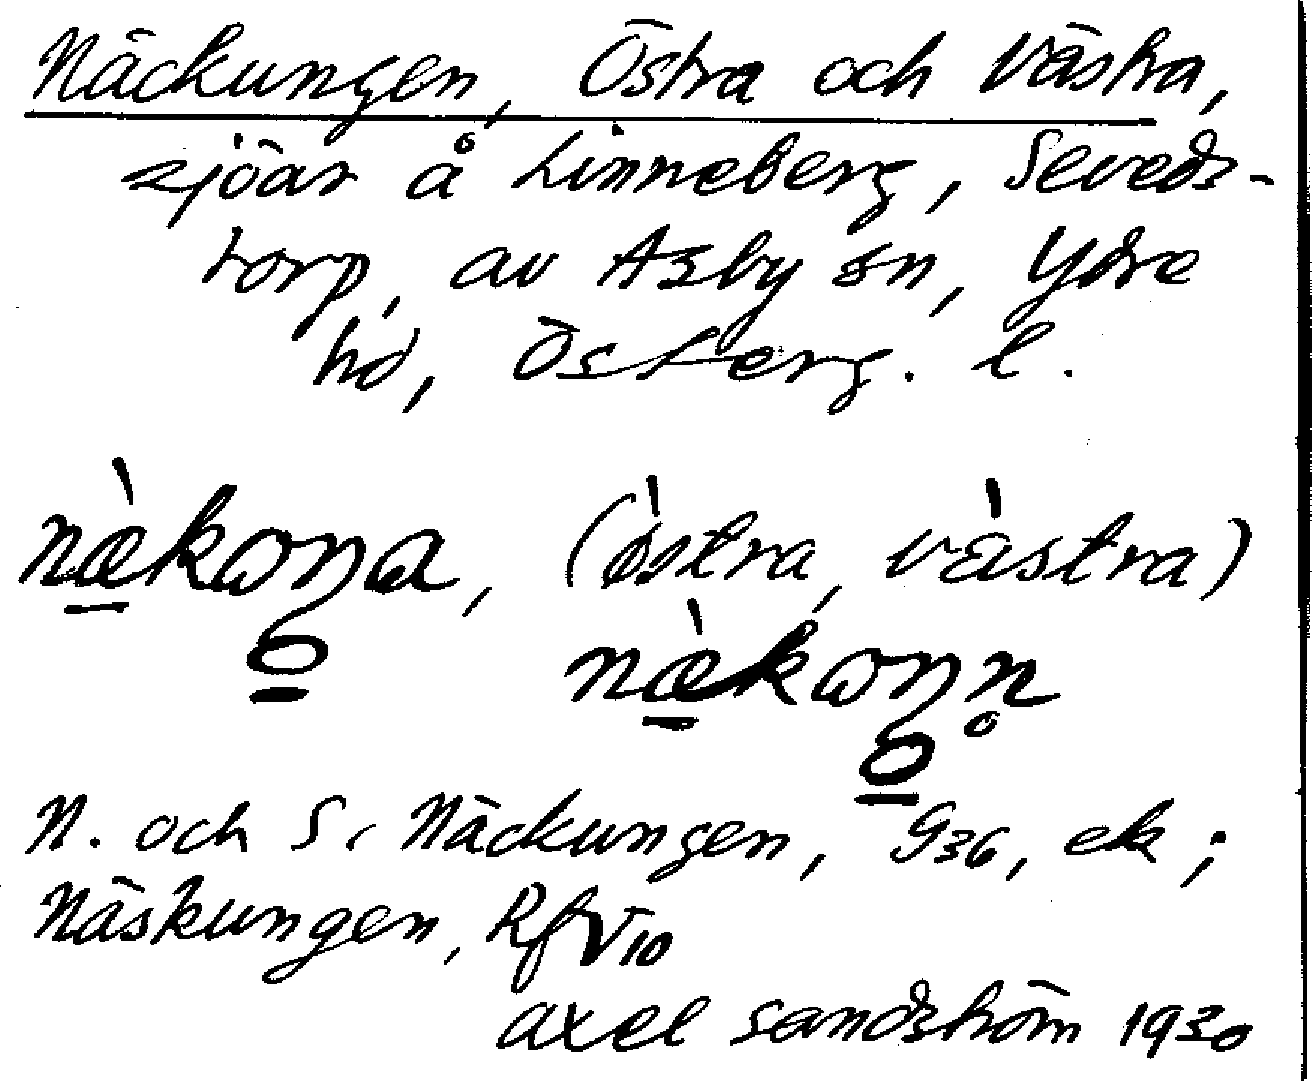 Näckungen, Östra och Västra,
sjöar å Linneberg, Seveds-
torp, av Asby sn, Ydre
hd, Österg. l.
næ̀kωŋa, (östra, västra)
næ̀kωŋn̥
N. och S. Näckungen, G36, ek;
Näskungen, Rf V 10
axel sandström 1930